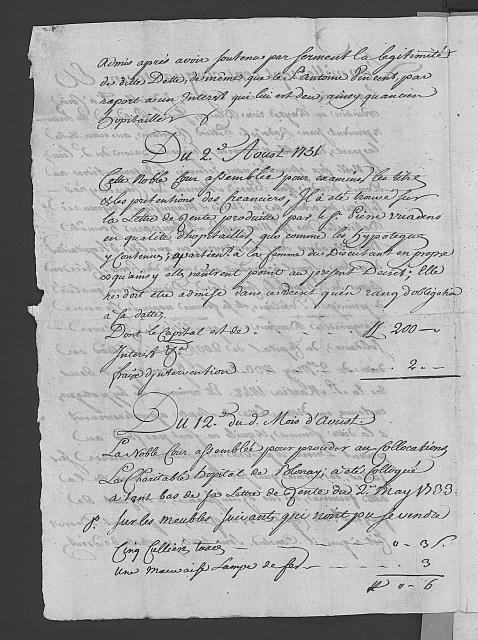 Admis après avoir soutenu par serment la legitimité
de ditte Dette, de même que le S.r Antoine Vincent, par
raport à un Interest qui lui est deu, ainsy qu'ancien
hopitailler
Du 2.d Aoust 1731
Cette Noble Cour assemblée pour examiner les titre
et les pretentions des Creanciers, Il a été trouvé sur
la Lettre de Rente produitte par le S.r Pierre
en qualité d'hopitailler, que comme les hypoteque
y Contenue, apartient à la femme du Discutant en propre
et qu'ainsy elle n'entrent point au present Decret; Elle
ne doit etre admise dans ce decret qu'en rang d'obligation
à sa datte,
Dont le Capital est de 200
Interest
fraix d'intervention 2
Du 12.e du d. Mois d'Aoust
La Noble Cour assemblée pour proceder aux Collocations
La Charitable hopital de Blonay, a été Colloqué
à tant bas de sa Lettre de Rente du 2.e may 1733
p.o Sur les meubles suivants qui n'ont pu se vendre
Cinq Cullière 0 - 3
Une mauvaise Lampe de fer 3
0 - 6